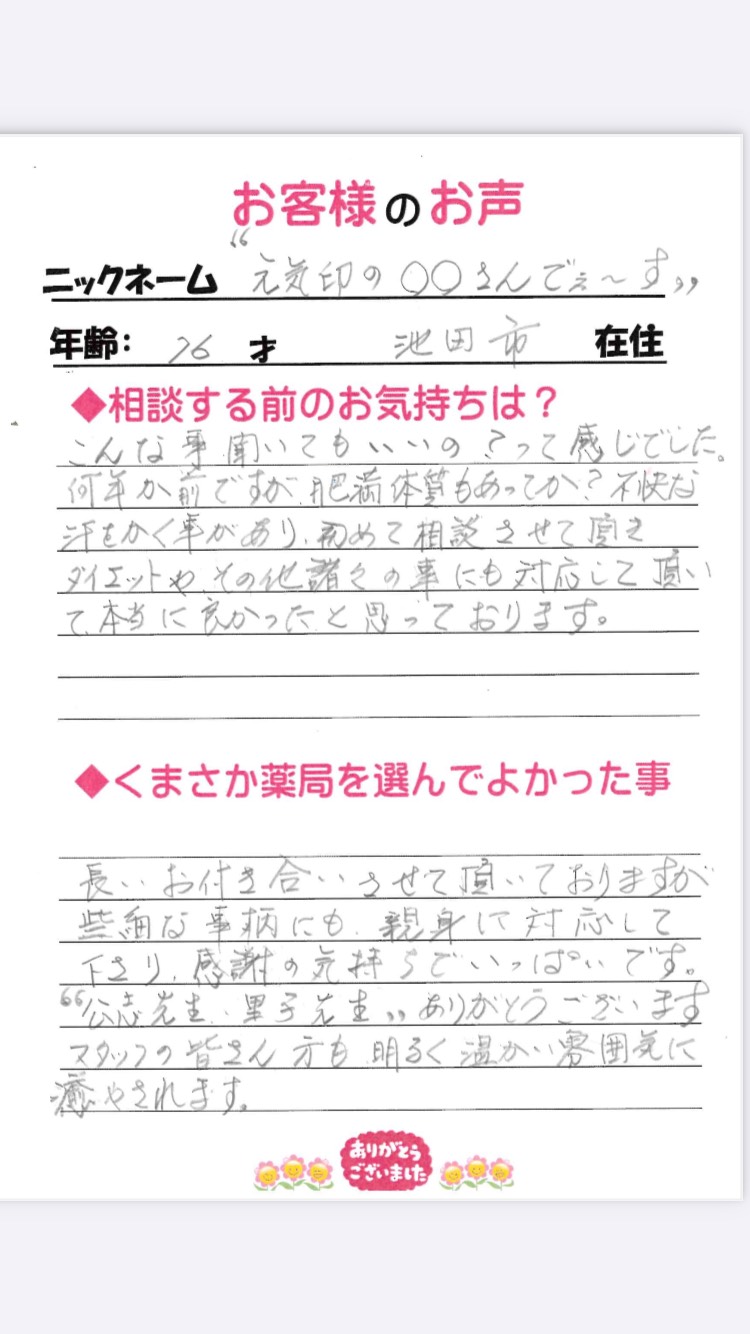 お客様のお声
ニックネーム “元気印の○○さんでぇ〜す”
年齢: 76 才 池田市 在住
◆相談する前のお気持ちは？
こんな事聞いてもいいの？って感じでした。
何年か前ですが、肥満体質もあってか？不快な
汗をかく事があり、初めて相談させて頂き
ダイエットや、その他諸々の事にも対応して頂い
て、本当に良かったと思っております。
◆くまさか薬局を選んでよかった事
長いお付き合いさせて頂いておりますが
些細な事柄にも、親身に対応して
下さり、感謝の気持ちでいっぱいです。
“公志先生、里子先生”ありがとうございます
スタッフの皆さん方も明るく温かい雰囲気に
癒やされます。
ありがとう
ございました